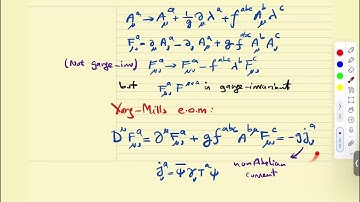 A^a_μ → A^a_μ + 1/g ∂_μ λ^a + f^{abc} A^b_μ λ^c
F^a_{μν} = ∂_μ A^a_ν - ∂_ν A^a_μ + g f^{abc} A^b_μ A^c_ν
(Not gauge-inv) F^a_{μν} → F^a_{μν} - f^{abc} λ^b F^c_{μν}
but F^a_{μν} F^{μν a} is gauge-invariant
Yang-Mills e.o.m:
D^μ F^a_{μν} = ∂^μ F^a_{μν} + g f^{abc} A^{bμ} F^c_{μν} = -g j^a_ν
j^a_ν = ψ̄ γ_ν T^a ψ
nonAbelian
current